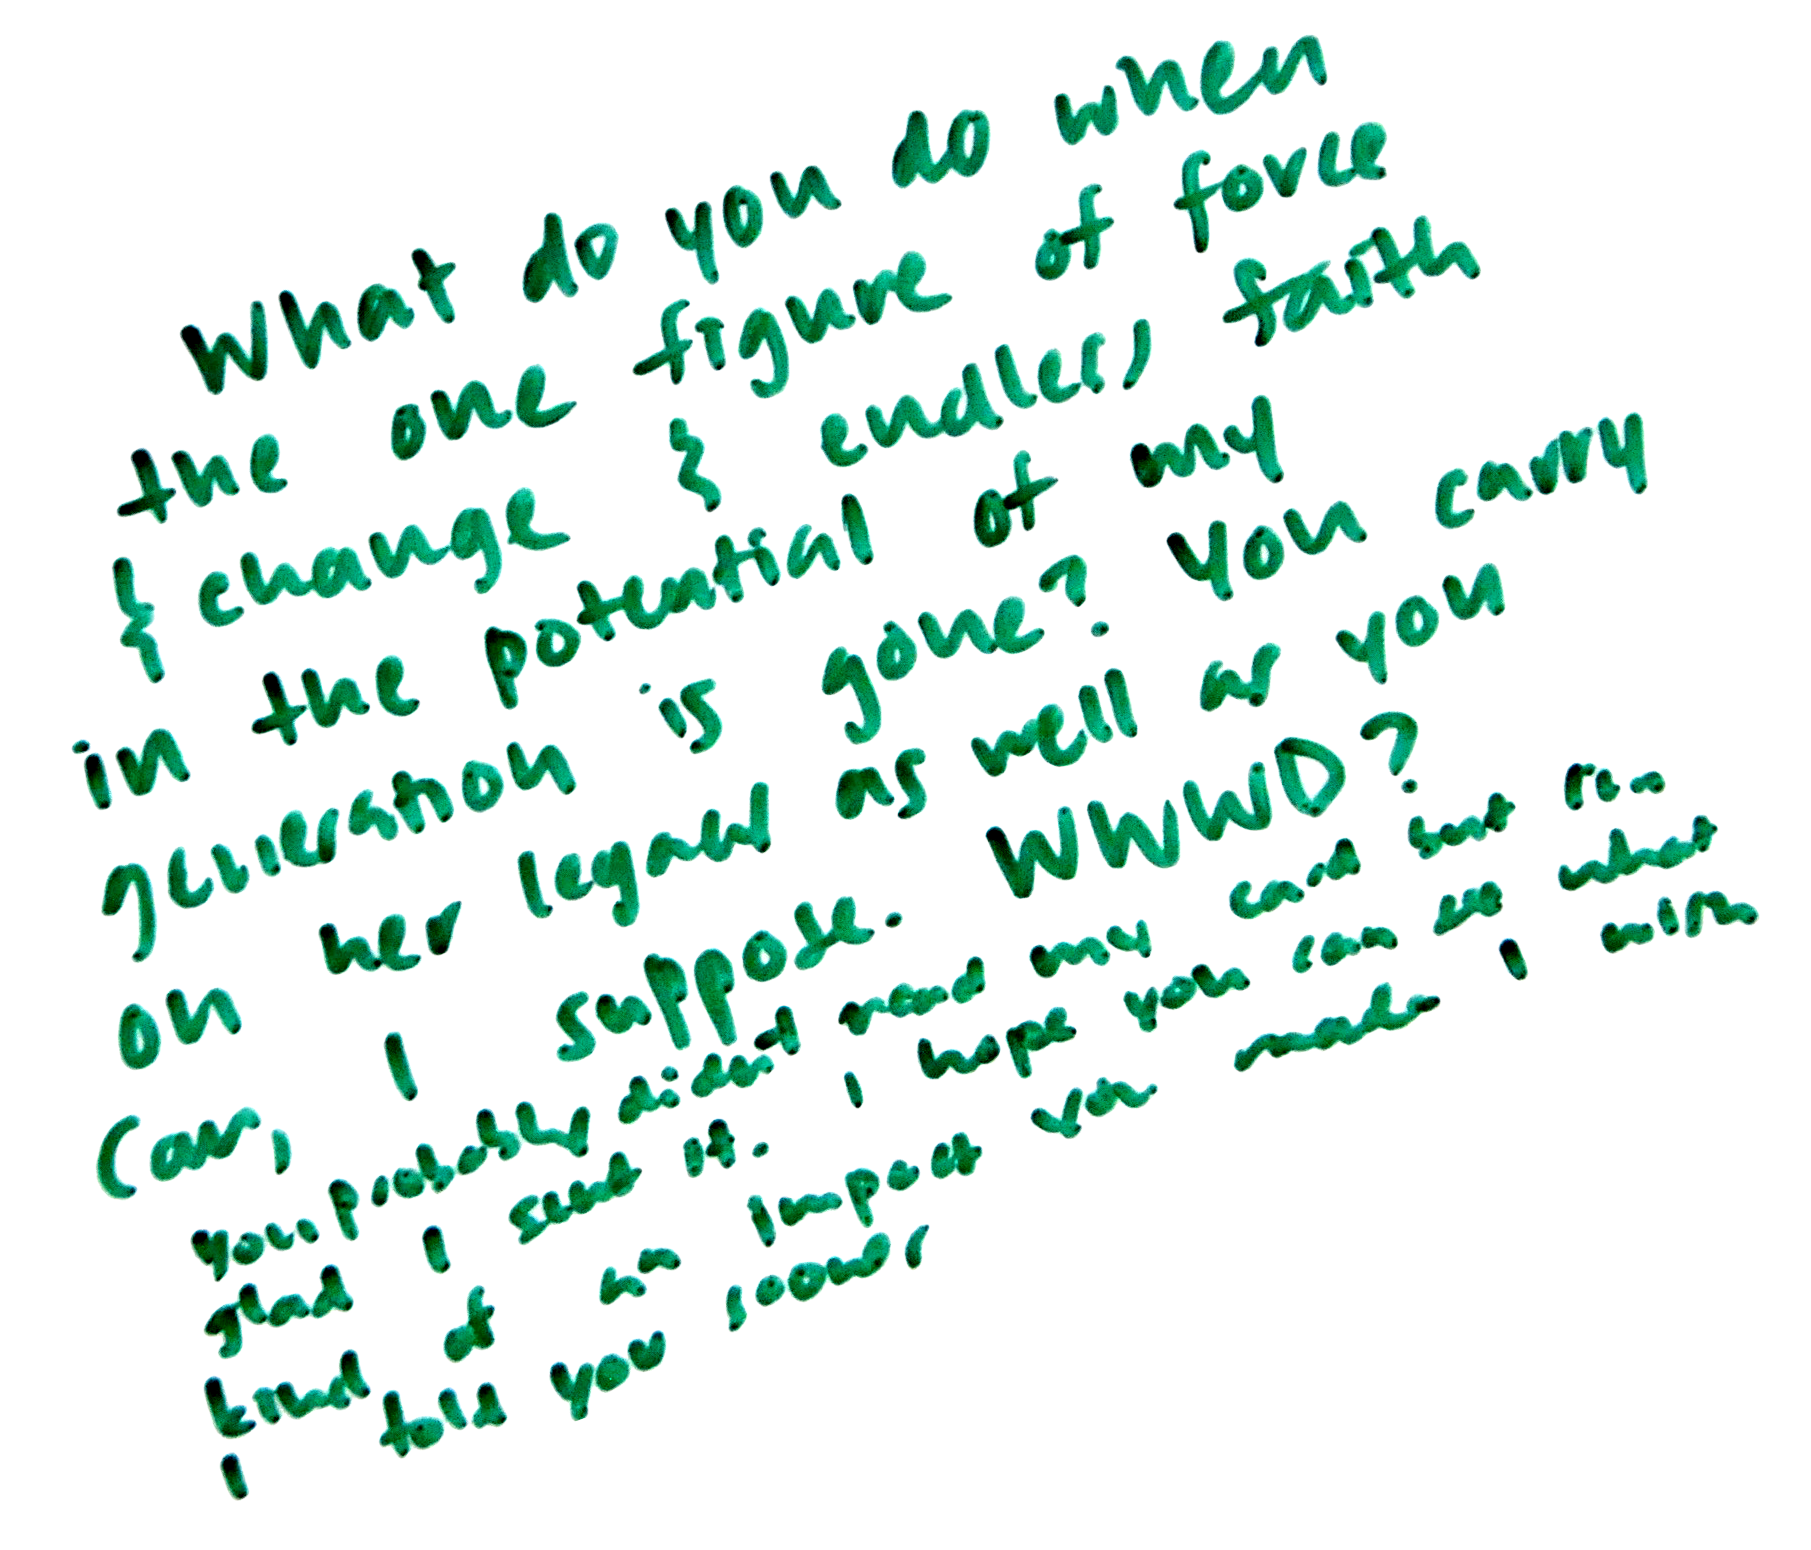 What do you do when
the one figure of force
& change & endless faith
in the potential of my
generation is gone? You carry
on her legacy as well as you
can, I suppose. WWWD?
you probably didn't read my card but I'm
glad I sent it. I hope you can see what
kind of an impact you made I wish
I told you sooner